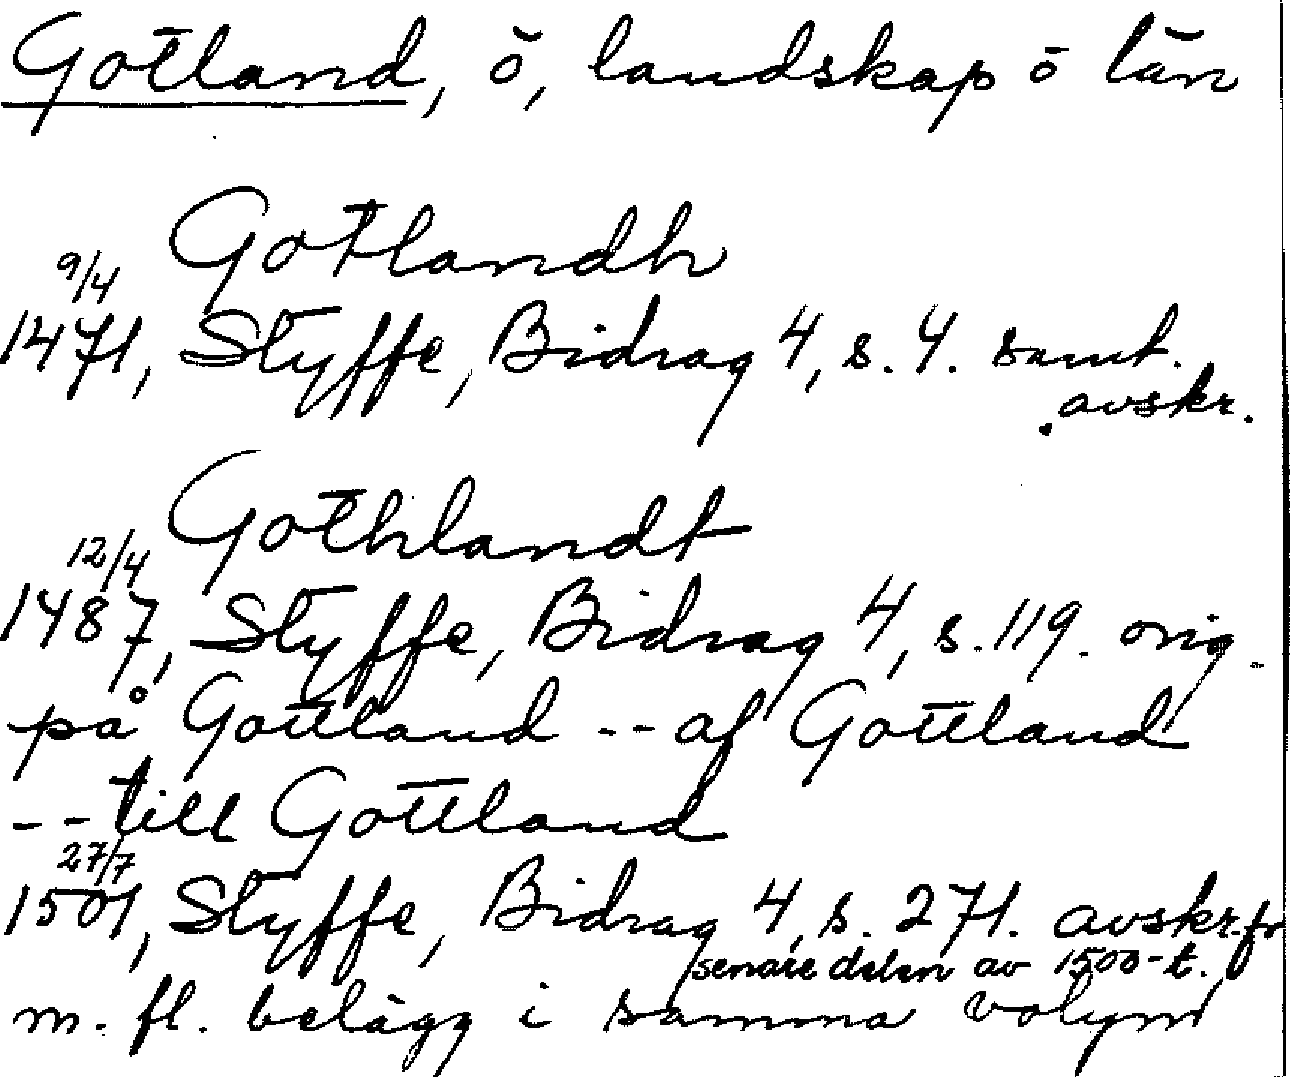 Gotland, ö, landskap ö län
Gotlandh
9/4
1471, Styffe, Bidrag 4, s. 4. samt.
avskr.
Gothlandt
12/4
1487, Styffe, Bidrag 4, s. 119. orig.
på Gottland -- af Gottland
-- till Gottland
27/7
1501, Styffe, Bidrag 4, s. 271. avskr. fr
senare delen av 1500-t.
m. fl. belägg i samma volym